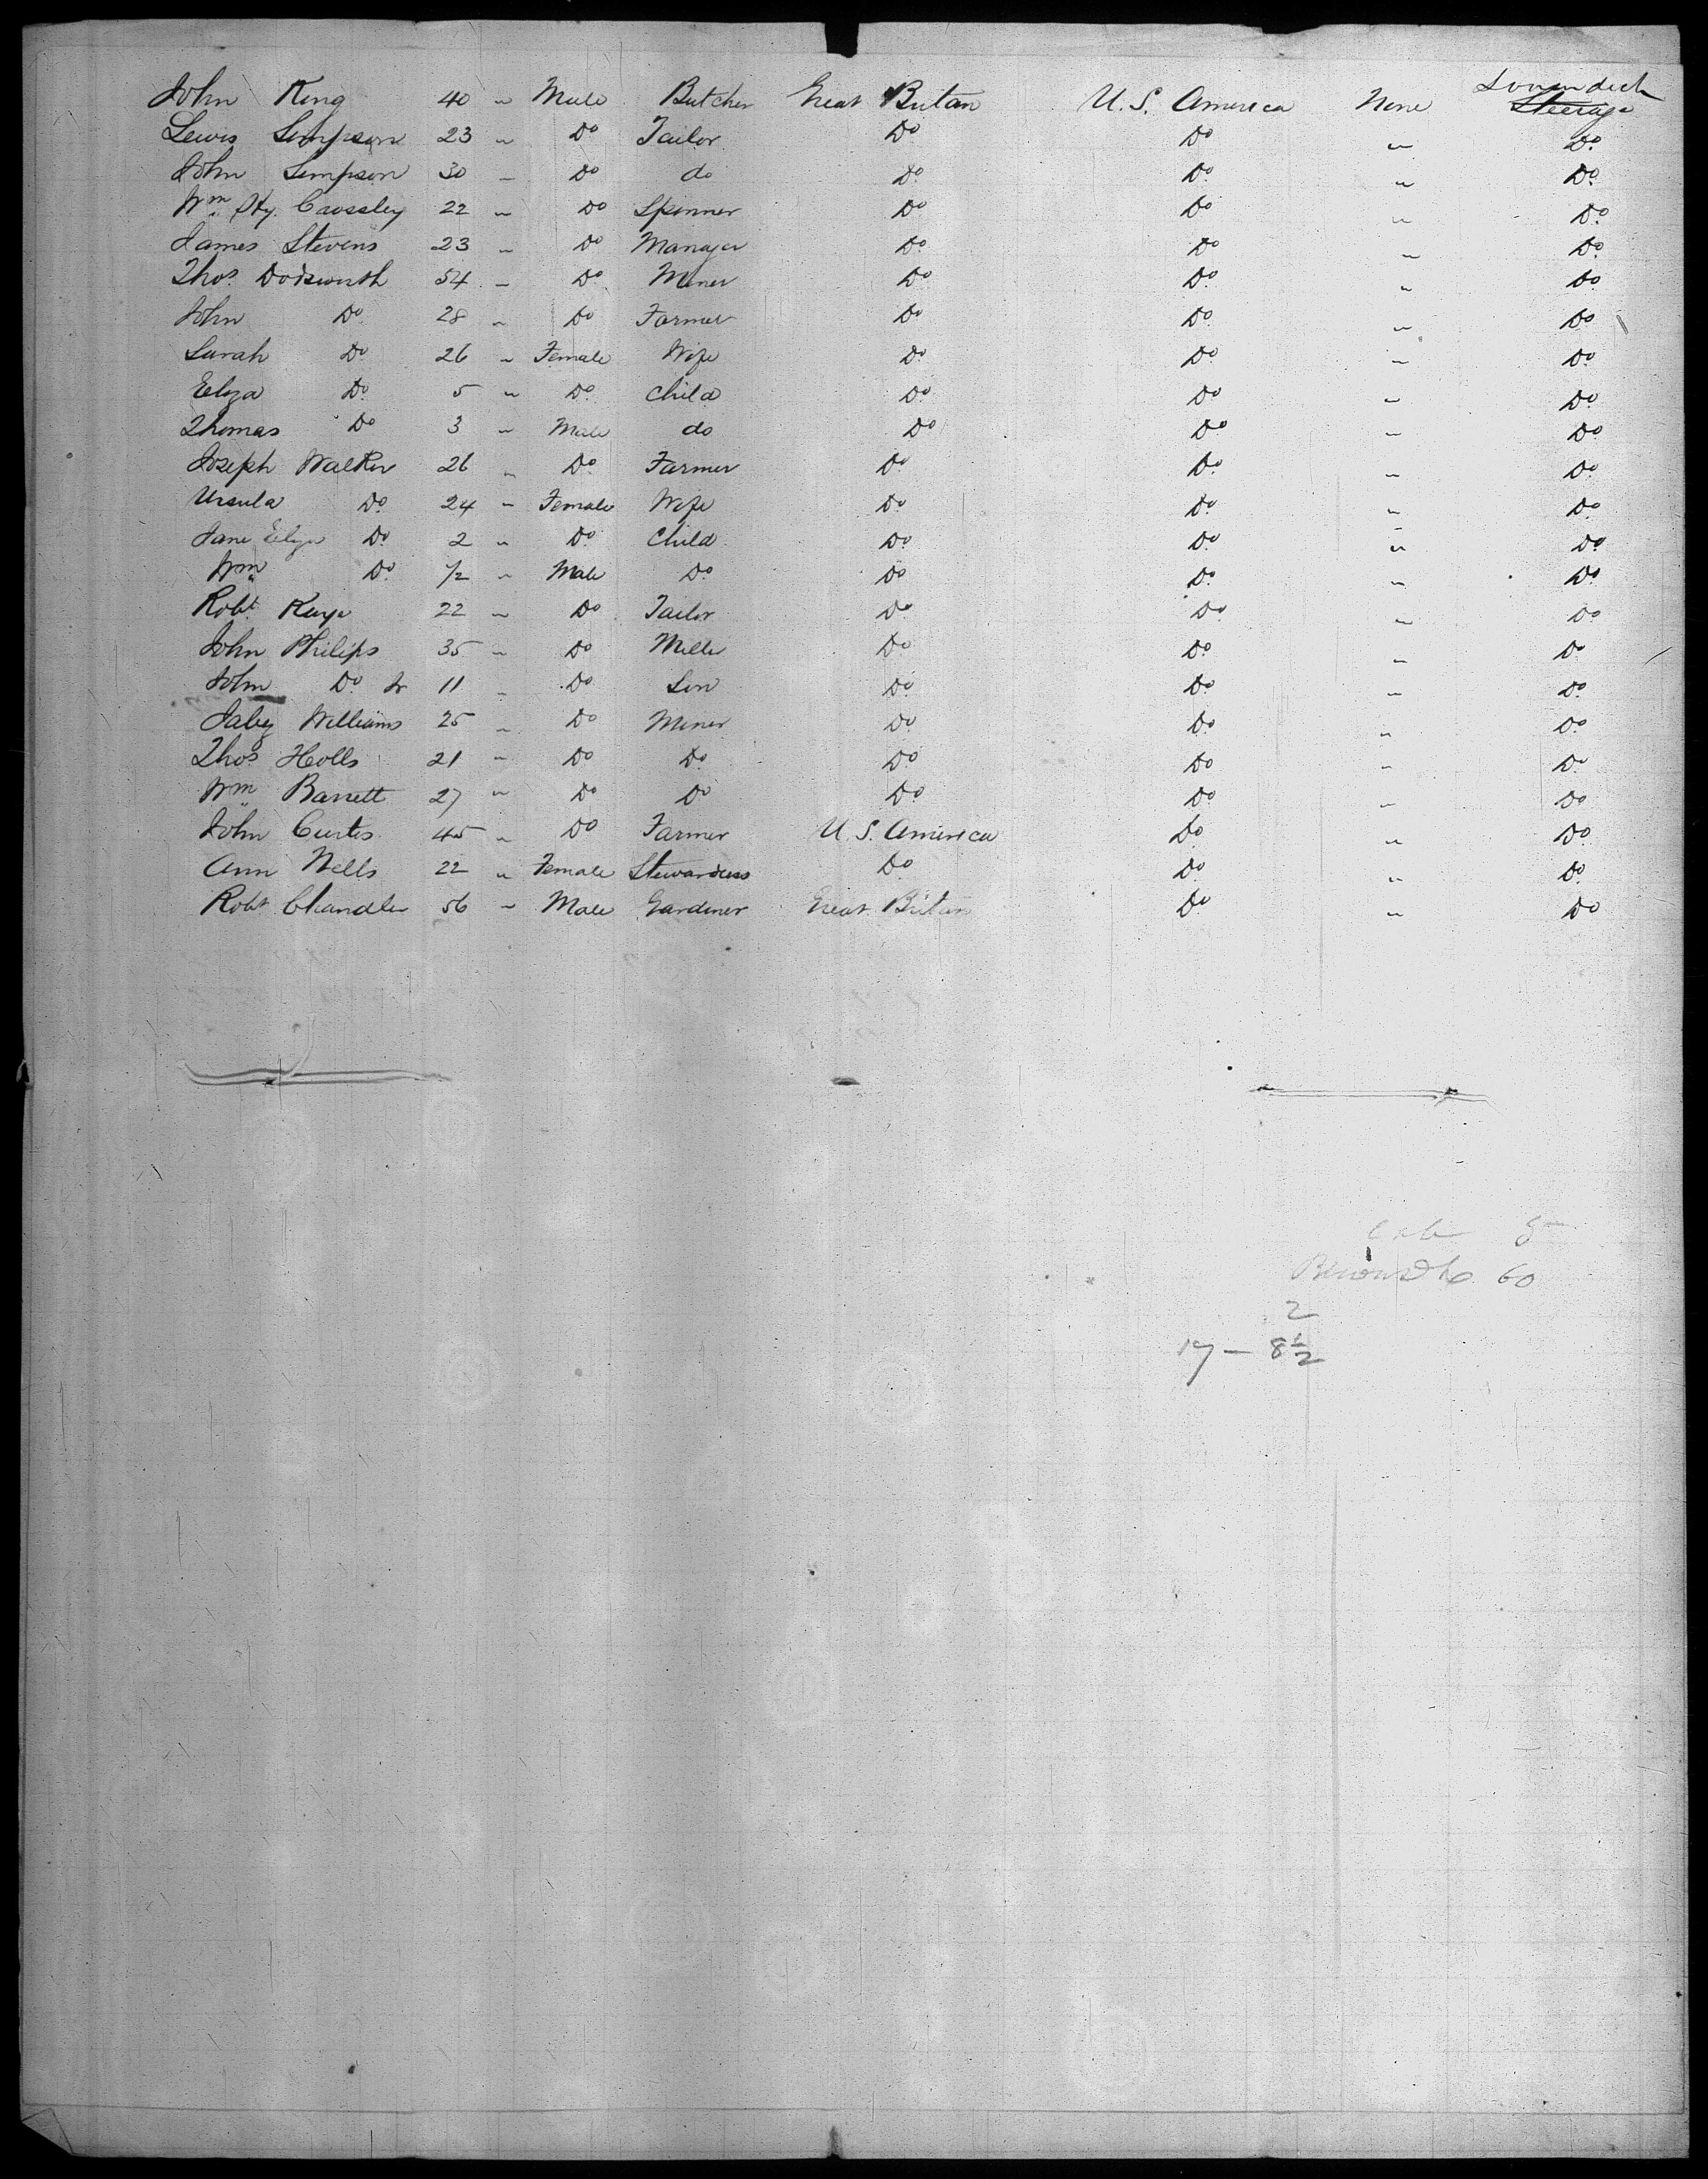 John King 40 " Male Butcher Great Britan U.S. America None Lower deck Steerage
Lewis Simpson 23 " Do Tailor Do Do " Do
John Simpson 30 " Do do Do Do " Do
Wm Hy. Crossley 22 " Do Spinner Do Do " Do
James Stevens 23 " Do Manager Do Do " Do
Thos. Dodsworth 54 " Do Miner Do Do " Do
John Do 28 " Do Farmer Do Do " Do
Sarah Do 26 " Female Wife Do Do " Do
Eliza Do 5 " Do Child Do Do " Do
Thomas Do 3 " Male do Do Do " Do
Joseph Walker 26 " Do Farmer Do Do " Do
Ursula Do 24 " Female Wife Do Do " Do
Jane Eliza Do 2 " Do Child Do Do " Do
Wm Do 1/2 " Male Do Do Do " Do
Robt. Kaye 22 " Do Tailor Do Do " Do
John Philips 35 " Do Miller Do Do " Do
John Do Jr 11 " Do Son Do Do " Do
Jabez Williams 25 " Do Miner Do Do " Do
Thos Holls 21 " Do Do Do Do " Do
Wm Barrett 27 " Do Do Do Do " Do
John Curtis 45 " Do Farmer U.S. America Do " Do
Ann Wells 22 " Female Stewardess Do Do " Do
Robt Chandler 56 " Male Gardiner Great Britan Do " Do
60
2
17 — 8 1/2